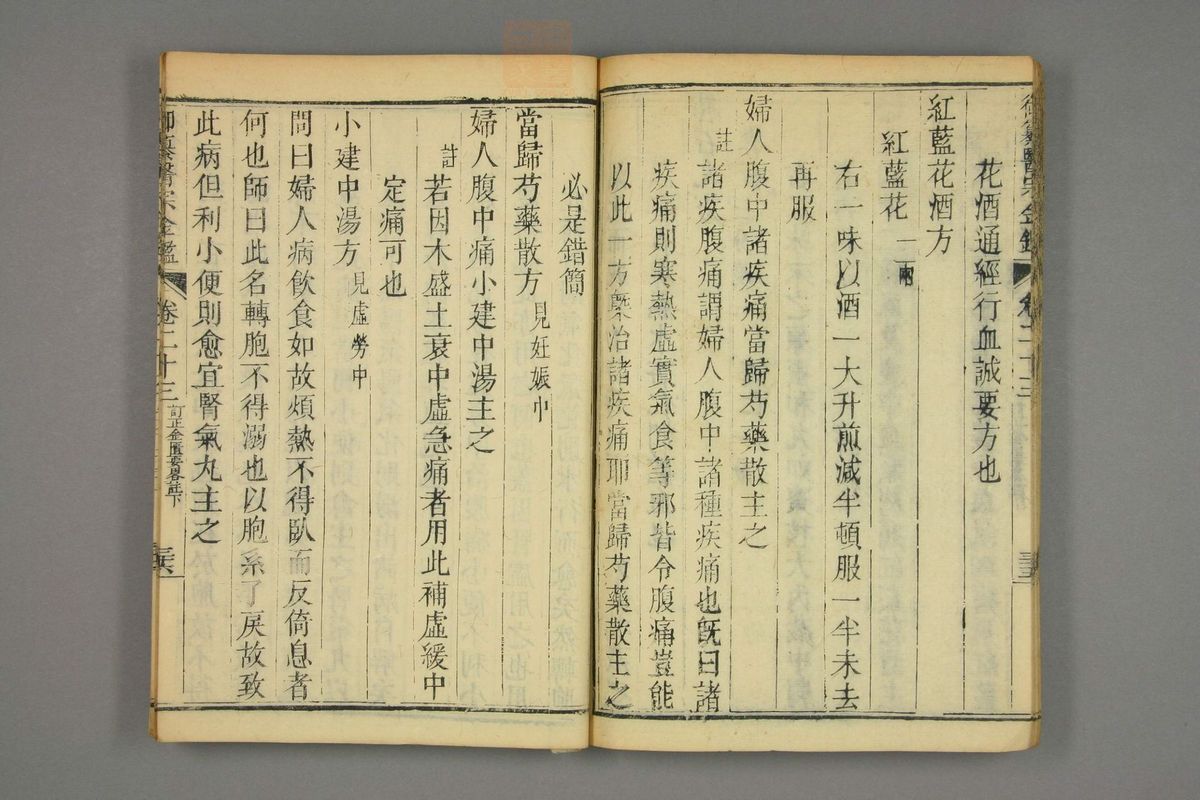 御纂醫宗金鑑 卷二十三
花酒通經行血誠要方也
紅藍花酒方
紅藍花一兩
右一味以酒一大升煎減半頓服一半未去
再服
婦人腹中諸疾痛當歸芍藥散主之
註諸疾腹痛謂婦人腹中諸種疾痛也既曰諸
疾痛則寒熱虛實氣食等邪皆令腹痛豈能
以此一方槩治諸疾痛耶當歸芍藥散主之
必是錯簡
當歸芍藥散方見妊娠中
婦人腹中痛小建中湯主之
註若因木盛土衰中虛急痛者用此補虛緩中
定痛可也
小建中湯方見虛勞中
問曰婦人病飲食如故煩熱不得臥而反倚息者
何也師曰此名轉胞不得溺也以胞系了戾故致
此病但利小便則愈宜腎氣丸主之
御纂醫宗金鑑 卷二十三 訂正金匱要畧註下